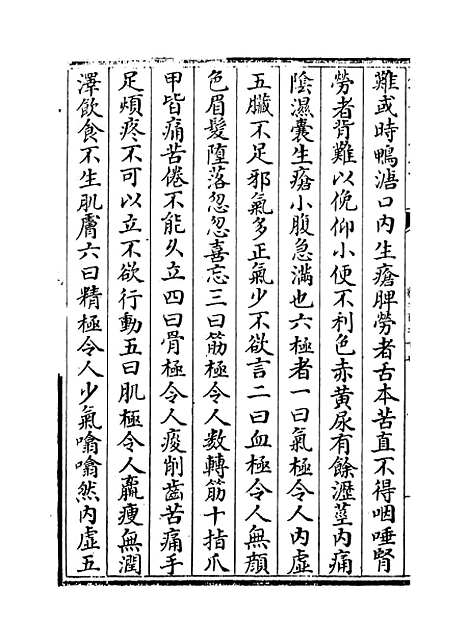 難或時鴨溏口内生瘡脾勞者舌本苦直不得咽唾腎
勞者背難以俛仰小便不利色赤黄尿有餘瀝莖内痛
陰濕囊生瘡小腹急滿也六極者一曰氣極令人内虚
五臟不足邪氣多正氣少不欲言二曰血極令人無顔
色眉髮墮落忽忽喜忘三曰筋極令人數轉筋十指爪
甲皆痛苦倦不能久立四曰骨極令人痠削齒苦痛手
足煩疼不可以立不欲行動五曰肌極令人羸瘦無潤
澤飲食不生肌膚六曰精極令人少氣噏噏然内虚五